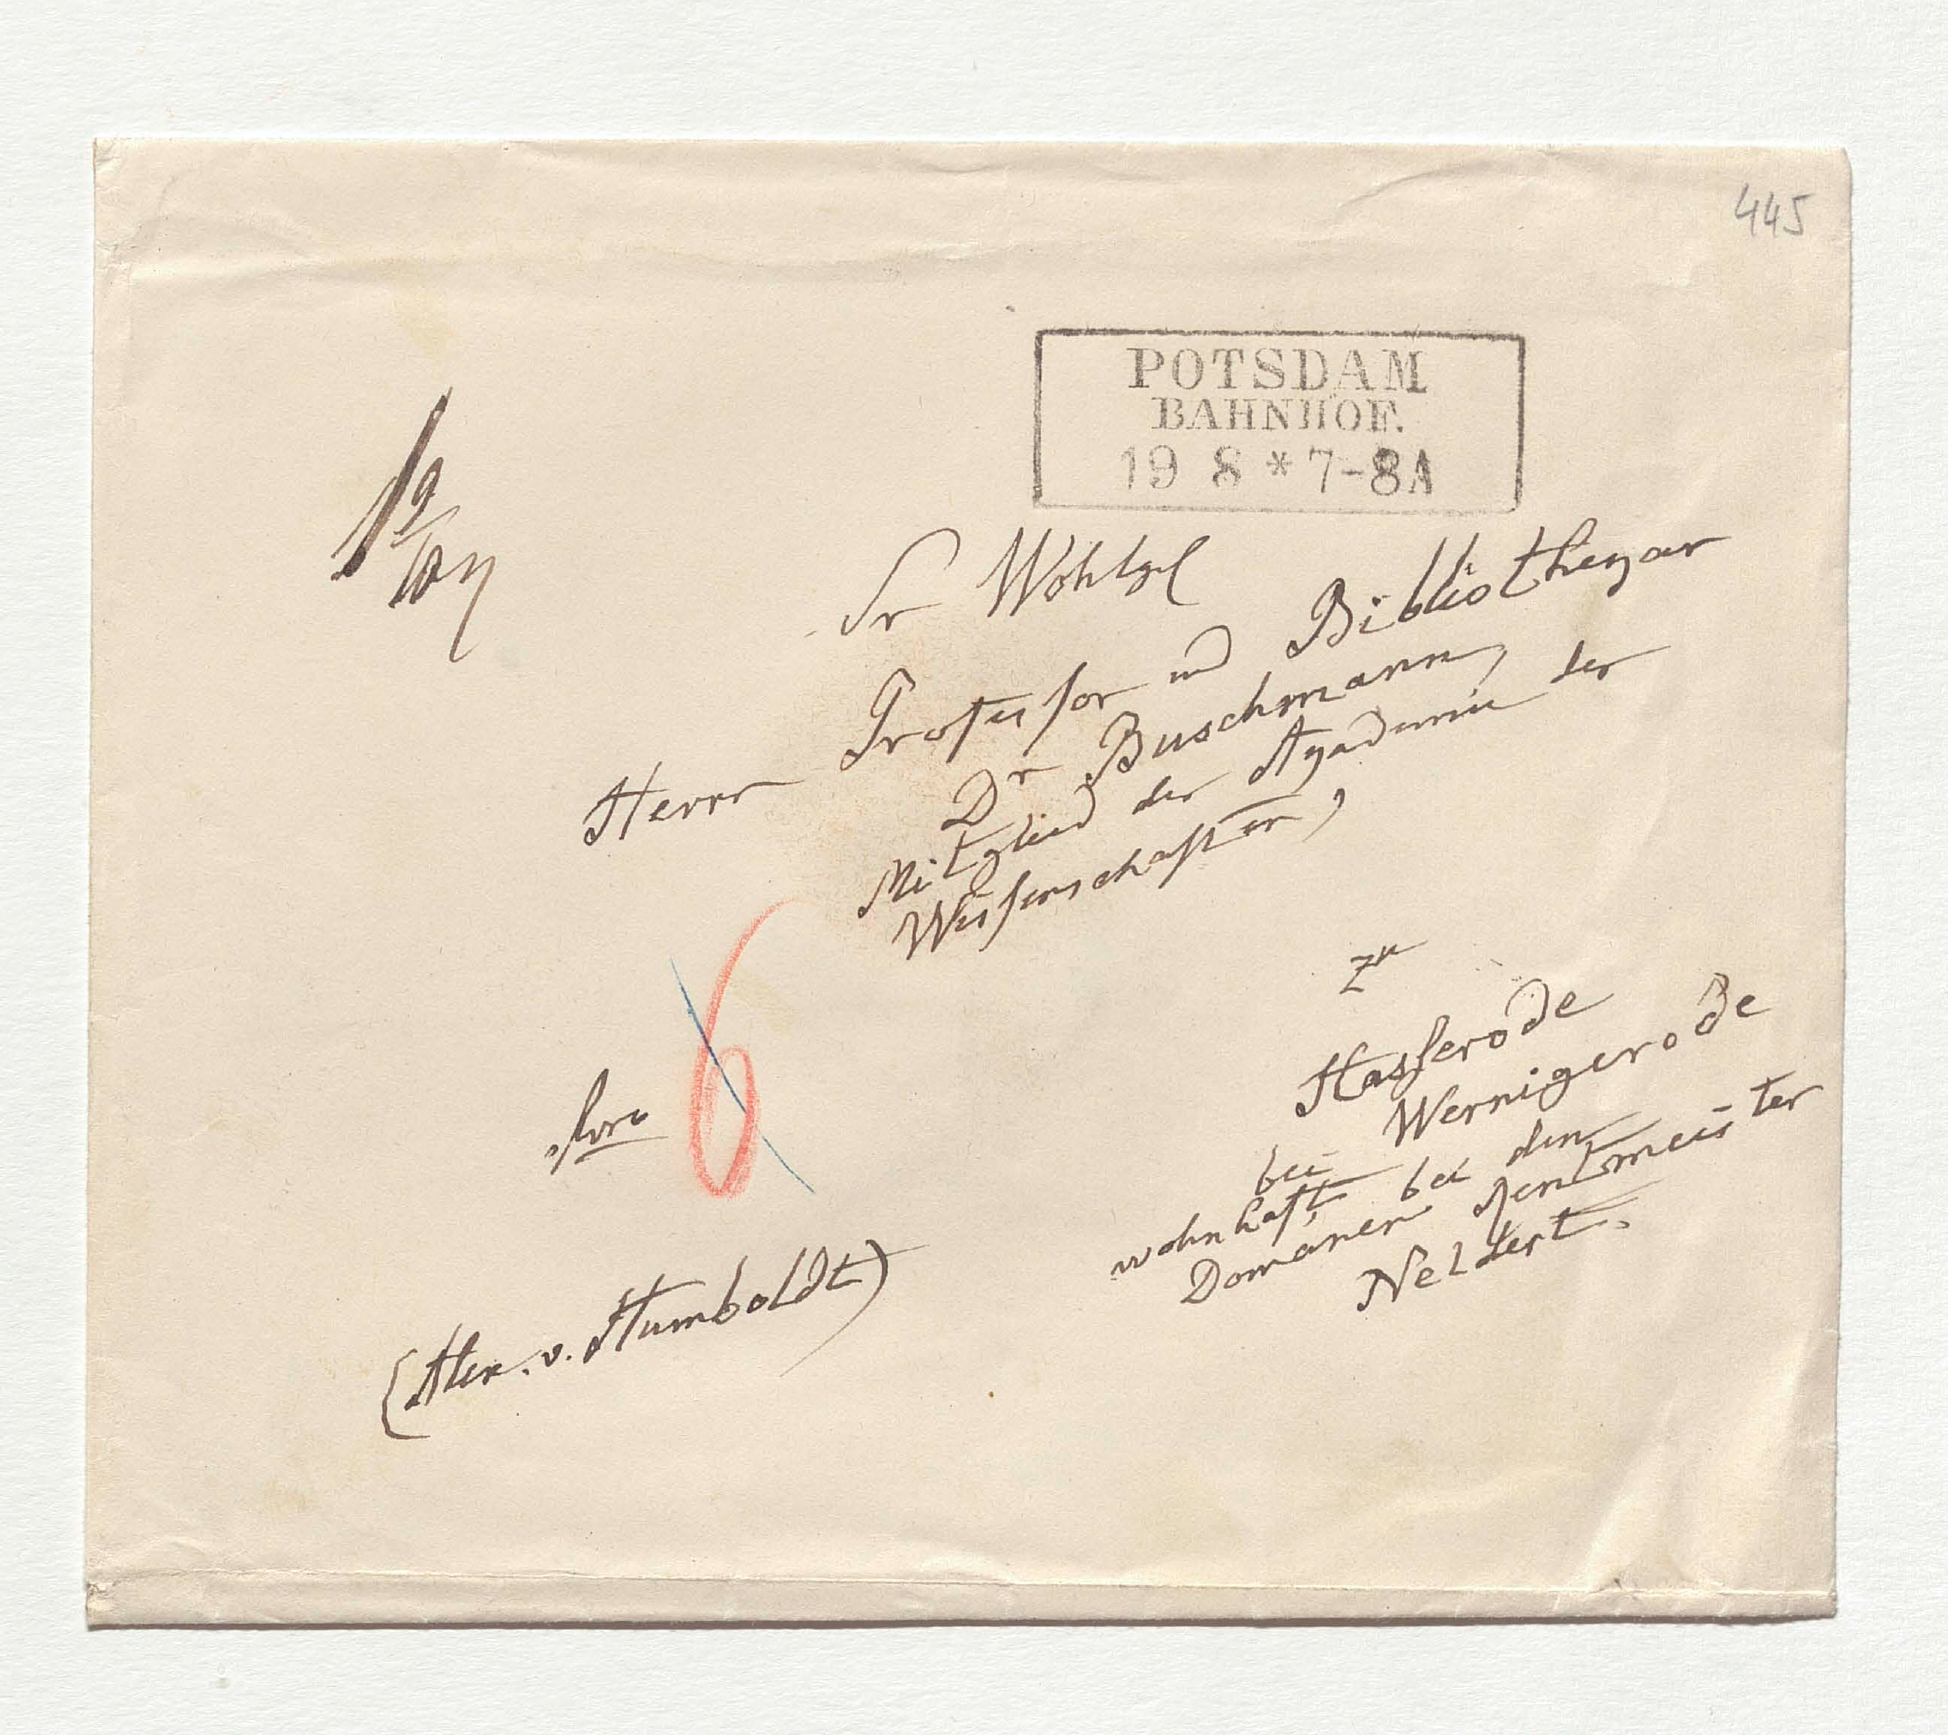 445
POTSDAM
BAHNHOF.
19 8 * 7-8 A
Sr Wohlgb
Herrn Professor und Bibliothegar
Dr Buschmann,
Mitglied der Agademie der
Wissenschaften,
zu
Hasserode
bei Wernigerode
wohnhaft bei dem
Domänen Rentmeister
Neldert.
6
(Alex. v. Humboldt)